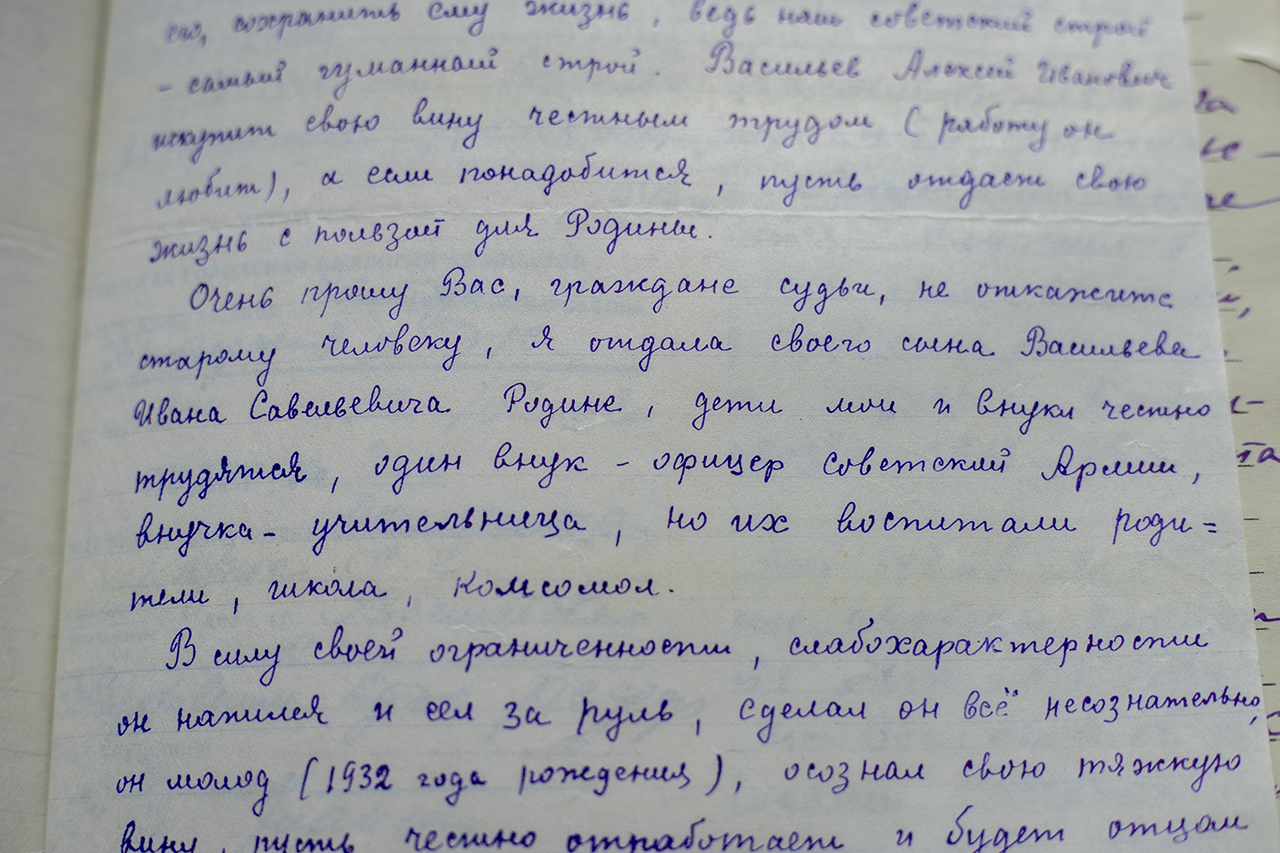 его, сохранить ему жизнь, ведь наш советский строй
- самый гуманный строй. Васильев Алексей Иванович
искупит свою вину честным трудом (работу он
любит), а если понадобится, пусть отдаст свою
жизнь с пользой для Родины.
Очень прошу Вас, граждане судьи, не откажите
старому человеку, я отдала своего сына Васильева
Ивана Савельевича Родине, дети мои и внуки честно
трудятся, один внук - офицер советской Армии,
внучка - учительница, но их воспитали роди=
тели, школа, комсомол.
В силу своей ограниченности, слабохарактерности
он напился и сел за руль, сделал он всё несознательно,
он молод (1932 года рождения), осознал свою тяжкую
вину, пусть честно отработает и будет отцом